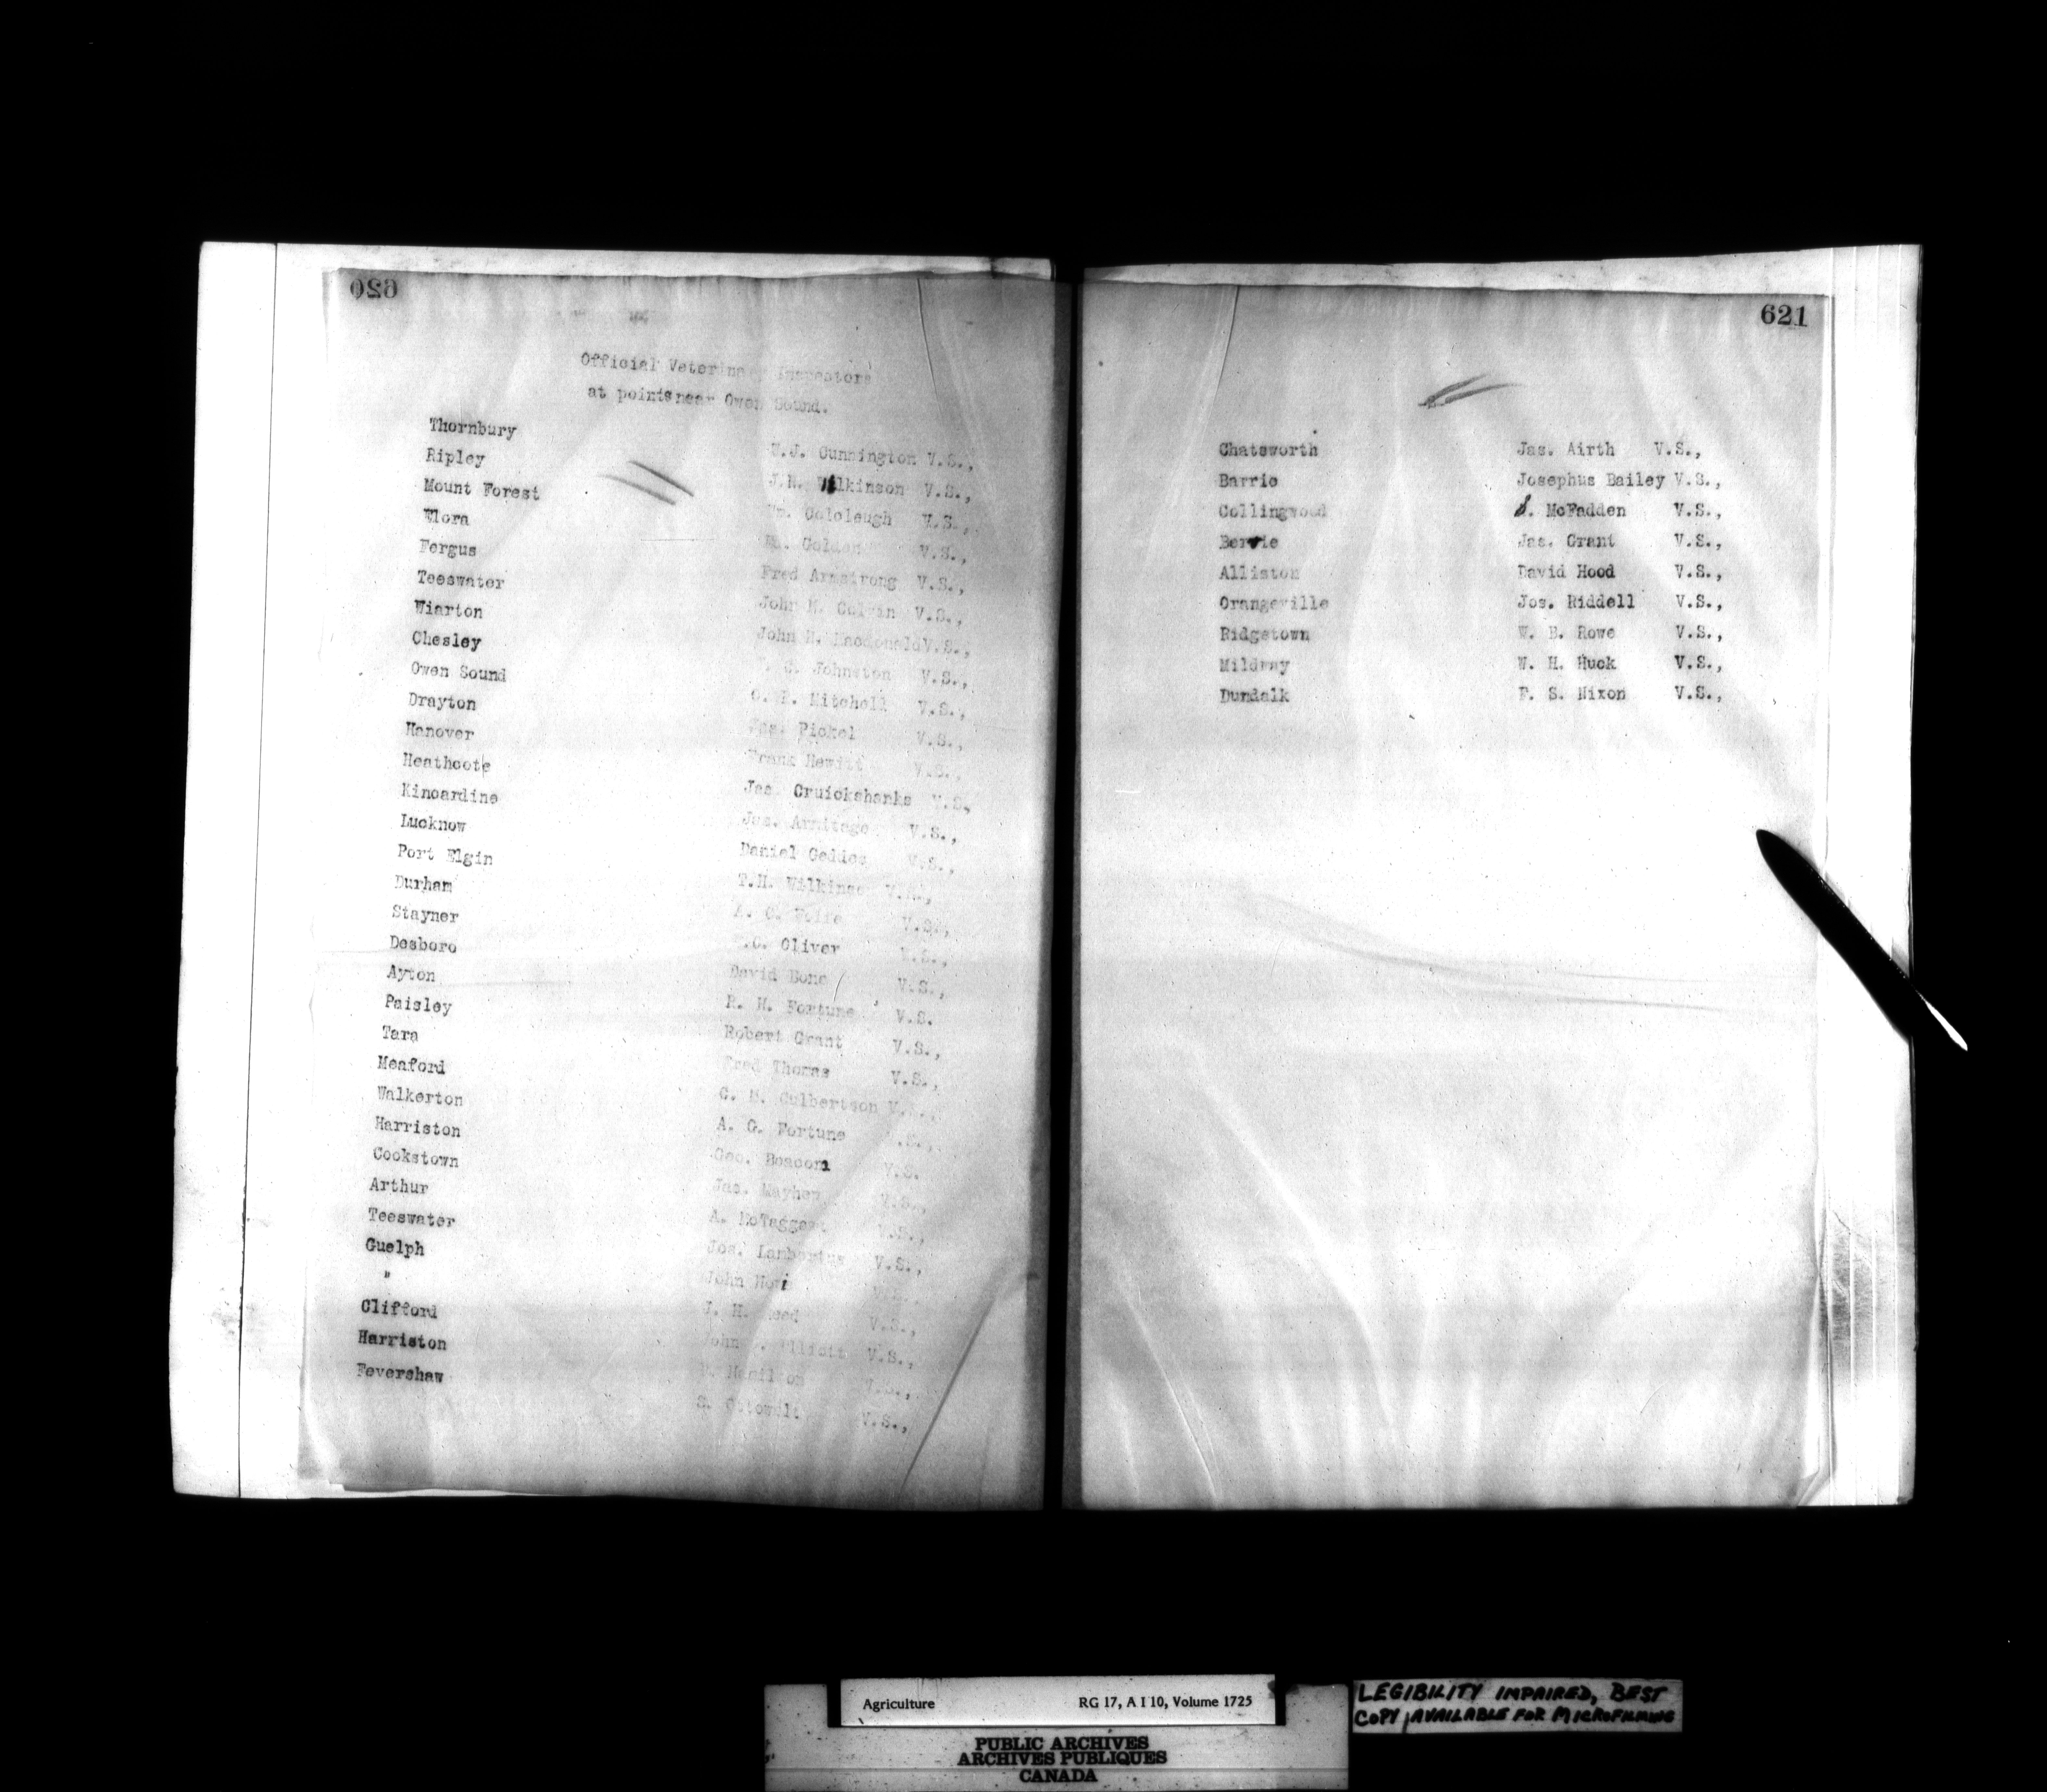 620
Official Veterinary Inspectors
at points near Owen Sound.
Thornbury W.J. Cunnington V.S.,
Ripley J.H. Wilkinson V.S.,
Mount Forest Wm. Cololeugh V.S.,
Elora Golden V.S.,
Fergus Fred Armstrong V.S.,
Teeswater John M. Colvin V.S.,
Wiarton John H. Macdonald V.S.,
Chesley Johnston V.S.,
Owen Sound C. R. Mitchell V.S.,
Drayton Jas. Pickel V.S.,
Hanover Frank Hewitt V.S.,
Heathcote Jas. Cruickshanks V.S,
Kincardine Jas. Armitage V.S.,
Lucknow Daniel Geddes V.S.,
Port Elgin T.H. V.S.,
Durham A. C. V.S.,
Stayner Oliver V.S.,
Desboro David Bone V.S.,
Ayton R. H. Fortune V.S.
Paisley Robert Grant V.S.,
Tara Fred Thomas V.S.,
Meaford C. M. Culbertson V.S.,
Walkerton A. G. Fortune V.S.,
Harriston Geo. Beacom V.S.
Cookstown Jas. Mayhew V.S.,
Arthur A. McTaggart V.S.,
Teeswater Jos. Lambertus V.S.,
Guelph John V.S.
" J. H. Reed V.S.,
Clifford John Elliott V.S.,
Harriston Hamilton V.S.,
Fevershaw S. V.S.,
621
Chatsworth Jas. Airth V.S.,
Barrie Josephus Bailey V.S.,
Collingwood S. McFadden V.S.,
Berrie Jas. Grant V.S.,
Alliston David Hood V.S.,
Orangeville Jos. Riddell V.S.,
Ridgetown W. B. Rowe V.S.,
Mildmay W. H. Huck V.S.,
Dundalk F. S. Nixon V.S.,
Agriculture RG 17, A I 10, Volume 1725
LEGIBILITY IMPAIRED, BEST
COPY AVAILABLE FOR MICROFILMING
PUBLIC ARCHIVES
ARCHIVES PUBLIQUES
CANADA